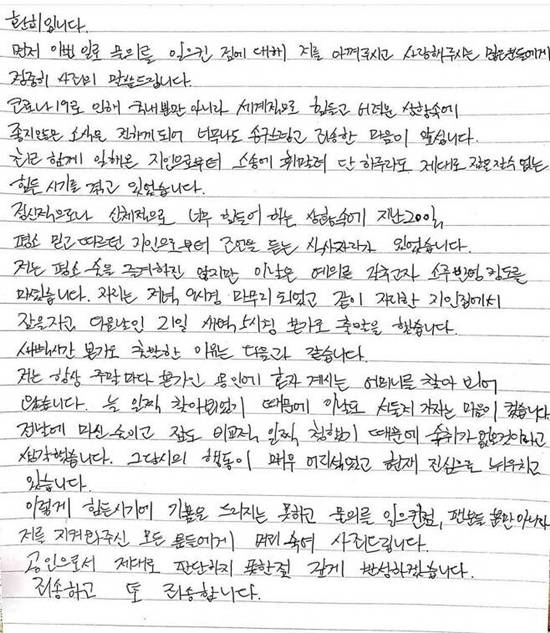 환희입니다.
먼저 이번 일로 물의를 일으킨 점에 대해 저를 아껴주시고 사랑해주시는 많은분들에게
정중히 사과의 말씀드립니다.
코로나19로 인해 국내뿐만 아니라 세계적으로 힘들고 어려운 상황속에
좋지않은 소식을 전하게 되어 너무나도 송구스럽고 죄송한 마음이 앞섭니다.
최근 함께 일해온 지인으로부터 소송에 휘말려 단 하루라도 제대로 잠을 잘수 없는
힘든 시기를 겪고 있었습니다.
정신적으로나 신체적으로 너무 힘들어 하는 상황속에 지난 20일,
평소 믿고 따르던 지인으로부터 조언을 듣는 식사자리가 있었습니다.
저는 평소 술을 즐겨하진 않지만 이날은 예의를 갖추고자 소주 반병 정도를
마셨습니다. 자리는 저녁 9시경 마무리 되었고 같이 자리한 지인집에서
잠을자고, 다음날인 21일 새벽 5시경 본가로 출발을 했습니다.
새벽시간 본가로 출발한 이유는 다음과 같습니다.
저는 항상 주말마다 본가인 용인에 혼자 계시는 어머니를 찾아 뵈어
왔습니다. 늘 일찍 찾아뵈었기 때문에 이날도 서둘러 가자는 마음이 컸습니다.
전날에 마신 술이고 잠도 비교적 일찍 청했기 때문에 숙취가 없을것이라고
생각했습니다. 그당시의 행동이 매우 어리석었고 현재 진심으로 뉘우치고
있습니다.
이렇게 힘든시기에 기쁨을 드리지는 못하고 물의를 일으킨점, 팬분들 뿐만 아니라
저를 지켜봐주신 모든 분들에게 머리 숙여 사죄드립니다.
공인으로서 제대로 판단하지 못한점 깊게 반성하겠습니다.
죄송하고 또 죄송합니다.